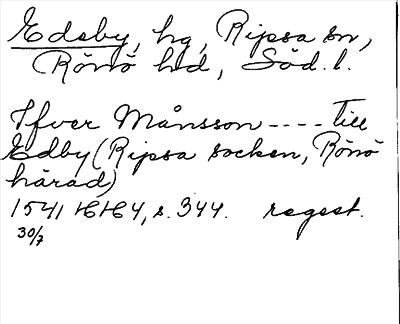 Edeby, hg, Ripsa sn,
Rönö hd, Söd. l.
Ifver Månsson ---- till
Edby (Ripsa socken, Rönö
härad)
1541 HH4, s. 344. regest.
30/7